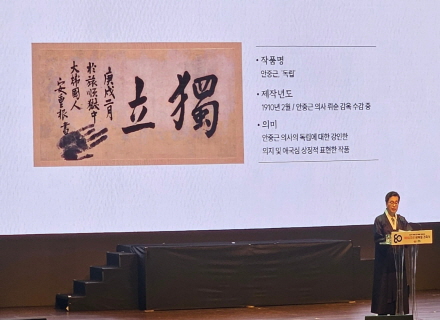 獨立
庚戌二月
於旅順獄中
大韓國人
安重根書
• 작품명
안중근, '독립'
• 제작년도
1910년 2월 / 안중근 의사 뤼순 감옥 수감 중
• 의미
안중근 의사의 독립에 대한 강인한
의지 및 애국심 상징적 표현한 작품
80